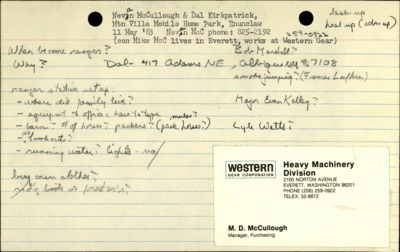 Nevin McCullough & Dal Kirkpatrick,
Mtn Villa Mobile Home Park, Enumclaw
11 May '83 Nevin McC phone: 825-2192
(son Mike McC lives in Everett, works at Western Gear)
259-0922
look-up
When become ranger?
Bob Mandell?
Why?
Dal- 417 Adams NE, Albuquerq 87108
smokejumping? (Francis Lufkin)
ranger station setup:
- where did family live?
Major Evan Kelley?
- equipmt of office: have to type
mules?
- barn? # of horses? packers? (pack horses?)
Lyle Watts?
- lookouts?
- running water? lights - no
buy own clothes?
Western
GEAR CORPORATION
Heavy Machinery
Division
2100 NORTON AVENUE
EVERETT, WASHINGTON 98201
PHONE (206) 259-0922
TELEX: 32-8872
M. D. McCullough
Manager, Purchasing